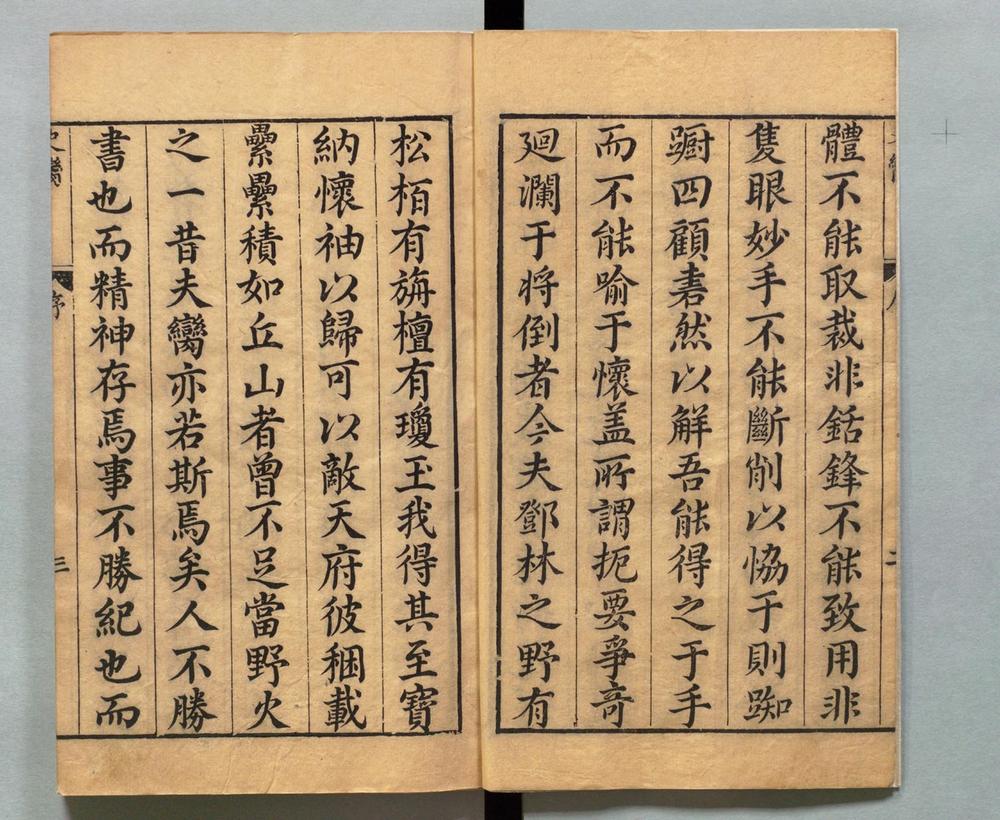 體不能取裁非銛鋒不能致用非
隻眼妙手不能斷削以恊于則踟
躕四顧砉然以解吾能得之于手
而不能喻于懷盖所謂扼要爭竒
廻瀾于将倒者今夫鄧林之野有
松栢有旃檀有瓊玉我得其至寶
納懷袖以歸可以敵天府彼稇載
纍纍積如丘山者曾不足當野火
之一昔夫臠亦若斯焉矣人不勝
書也而精神存焉事不勝紀也而
序
三